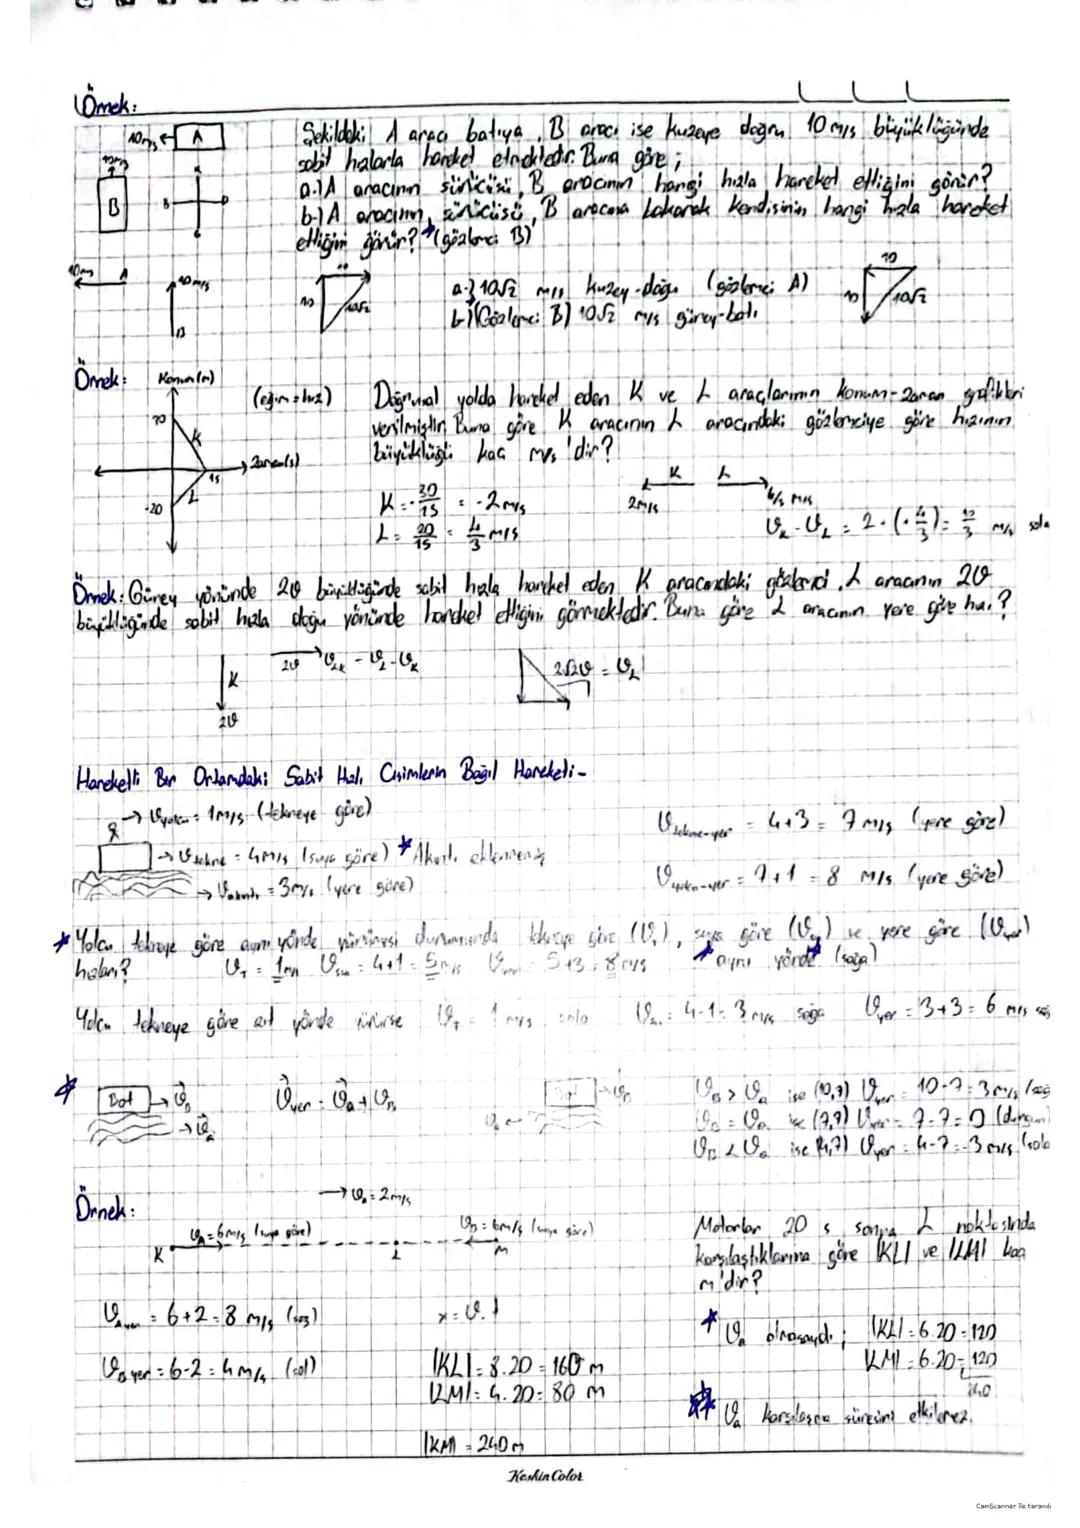 Örnek:
10 m/s A
10 m/s
B
B D
Şekildeki A aracı batıya, B aracı ise kuzeye doğru 10 m/s büyüklüğünde
sabit hızlarla hareket etmektedir. Buna göre;
a-) A aracının sürücüsü, B aracının hangi hızla hareket ettiğini görür?
b-) A aracının sürücüsü, B aracına bakarak kendisinin hangi hızla hareket
ettiğini görür? (gözlemci B)
10 m/s A
10 m/s
B
10
10
10√2
a-) 10√2 m/s kuzey-doğu (gözlemci A)
b-) (Gözlemci B) 10√2 m/s güney-batı
10
10
10√2
Örnek:
Konum (m)
(eğim = hız)
K
Zaman(s)
15
-20
L
Doğrusal yolda hareket eden K ve L araçlarının konum-zaman grafikleri
verilmiştir. Buna göre K aracının L aracındaki gözlemciye göre hızının
büyüklüğü kaç m/s 'dir?
K = -30/15 = -2 m/s
L = 20/15 = 4/3 m/s
K L
2 m/s
m/s sola
Örnek: Güney yönünde 2ϑ büyüklüğünde sabit hızla hareket eden K aracındaki gözlemci L aracının 2ϑ
büyüklüğünde sabit hızla doğu yönünde hareket ettiğini görmektedir. Buna göre L aracının yere göre hızı?
K
2ϑ
2ϑ
2√2ϑ = ϑL
Hareketli Bir Ortamdaki Sabit Hızlı Cisimlerin Bağıl Hareketi-
→ ϑyolcu = 1 m/s (tekneye göre)
→ ϑtekne = 4 m/s (suya göre) * Akıntı eklenmemiş
→ ϑakıntı = 3 m/s (yere göre)
ϑtekne-yer = 4+3 = 7 m/s (yere göre)
ϑyolcu-yer = 7+1 = 8 m/s (yere göre)
* Yolcu tekneye göre aynı yönde yürümesi durumunda tekneye göre (ϑT), suya göre (ϑsu) ve yere göre (ϑyer)
hızları?
ϑT = 1 m/s ϑsu = 4+1 = 5 m/s ϑyer = 5+3 = 8 m/s
* aynı yönde * (sağa)
Yolcu tekneye göre zıt yönde yürürse ϑT = 1 m/s sola ϑsu = 4-1 = 3 m/s sağa ϑyer = 3+3 = 6 m/s
Bot → ϑB
→ ϑa
ϑyer = ϑa + ϑB
Bot → ϑB
ϑa ←
ϑB > ϑa ise (10,7) ϑyer = 10-7 = 3 m/s
ϑB = ϑa ise (7,7) ϑyer = 7-7 = 0 (durgun)
ϑB < ϑa ise (4,7) ϑyer = 4-7 = -3 m/s (sola
Örnek:
→ ϑa = 2 m/s
ϑA = 6 m/s (suya göre)
ϑB = 6 m/s (suya göre)
K L M
Motorlar 20 s sonra L noktasında
karşılaştıklarına göre |KL| ve |LM| kaç
m'dir?
ϑA yer = 6+2 = 8 m/s (sağ)
x = ϑ.t
ϑB yer = 6-2 = 4 m/s (sol)
|KL| = 8.20 = 160 m
|LM| = 4.20 = 80 m
|KM| = 240 m
* ϑa olmasaydı; |KL| = 6.20 = 120
|LM| = 6.20 = 120
240
ϑa karşılaşma süresini etkilemez.
Keskin Color
CamScanner ile tarandı